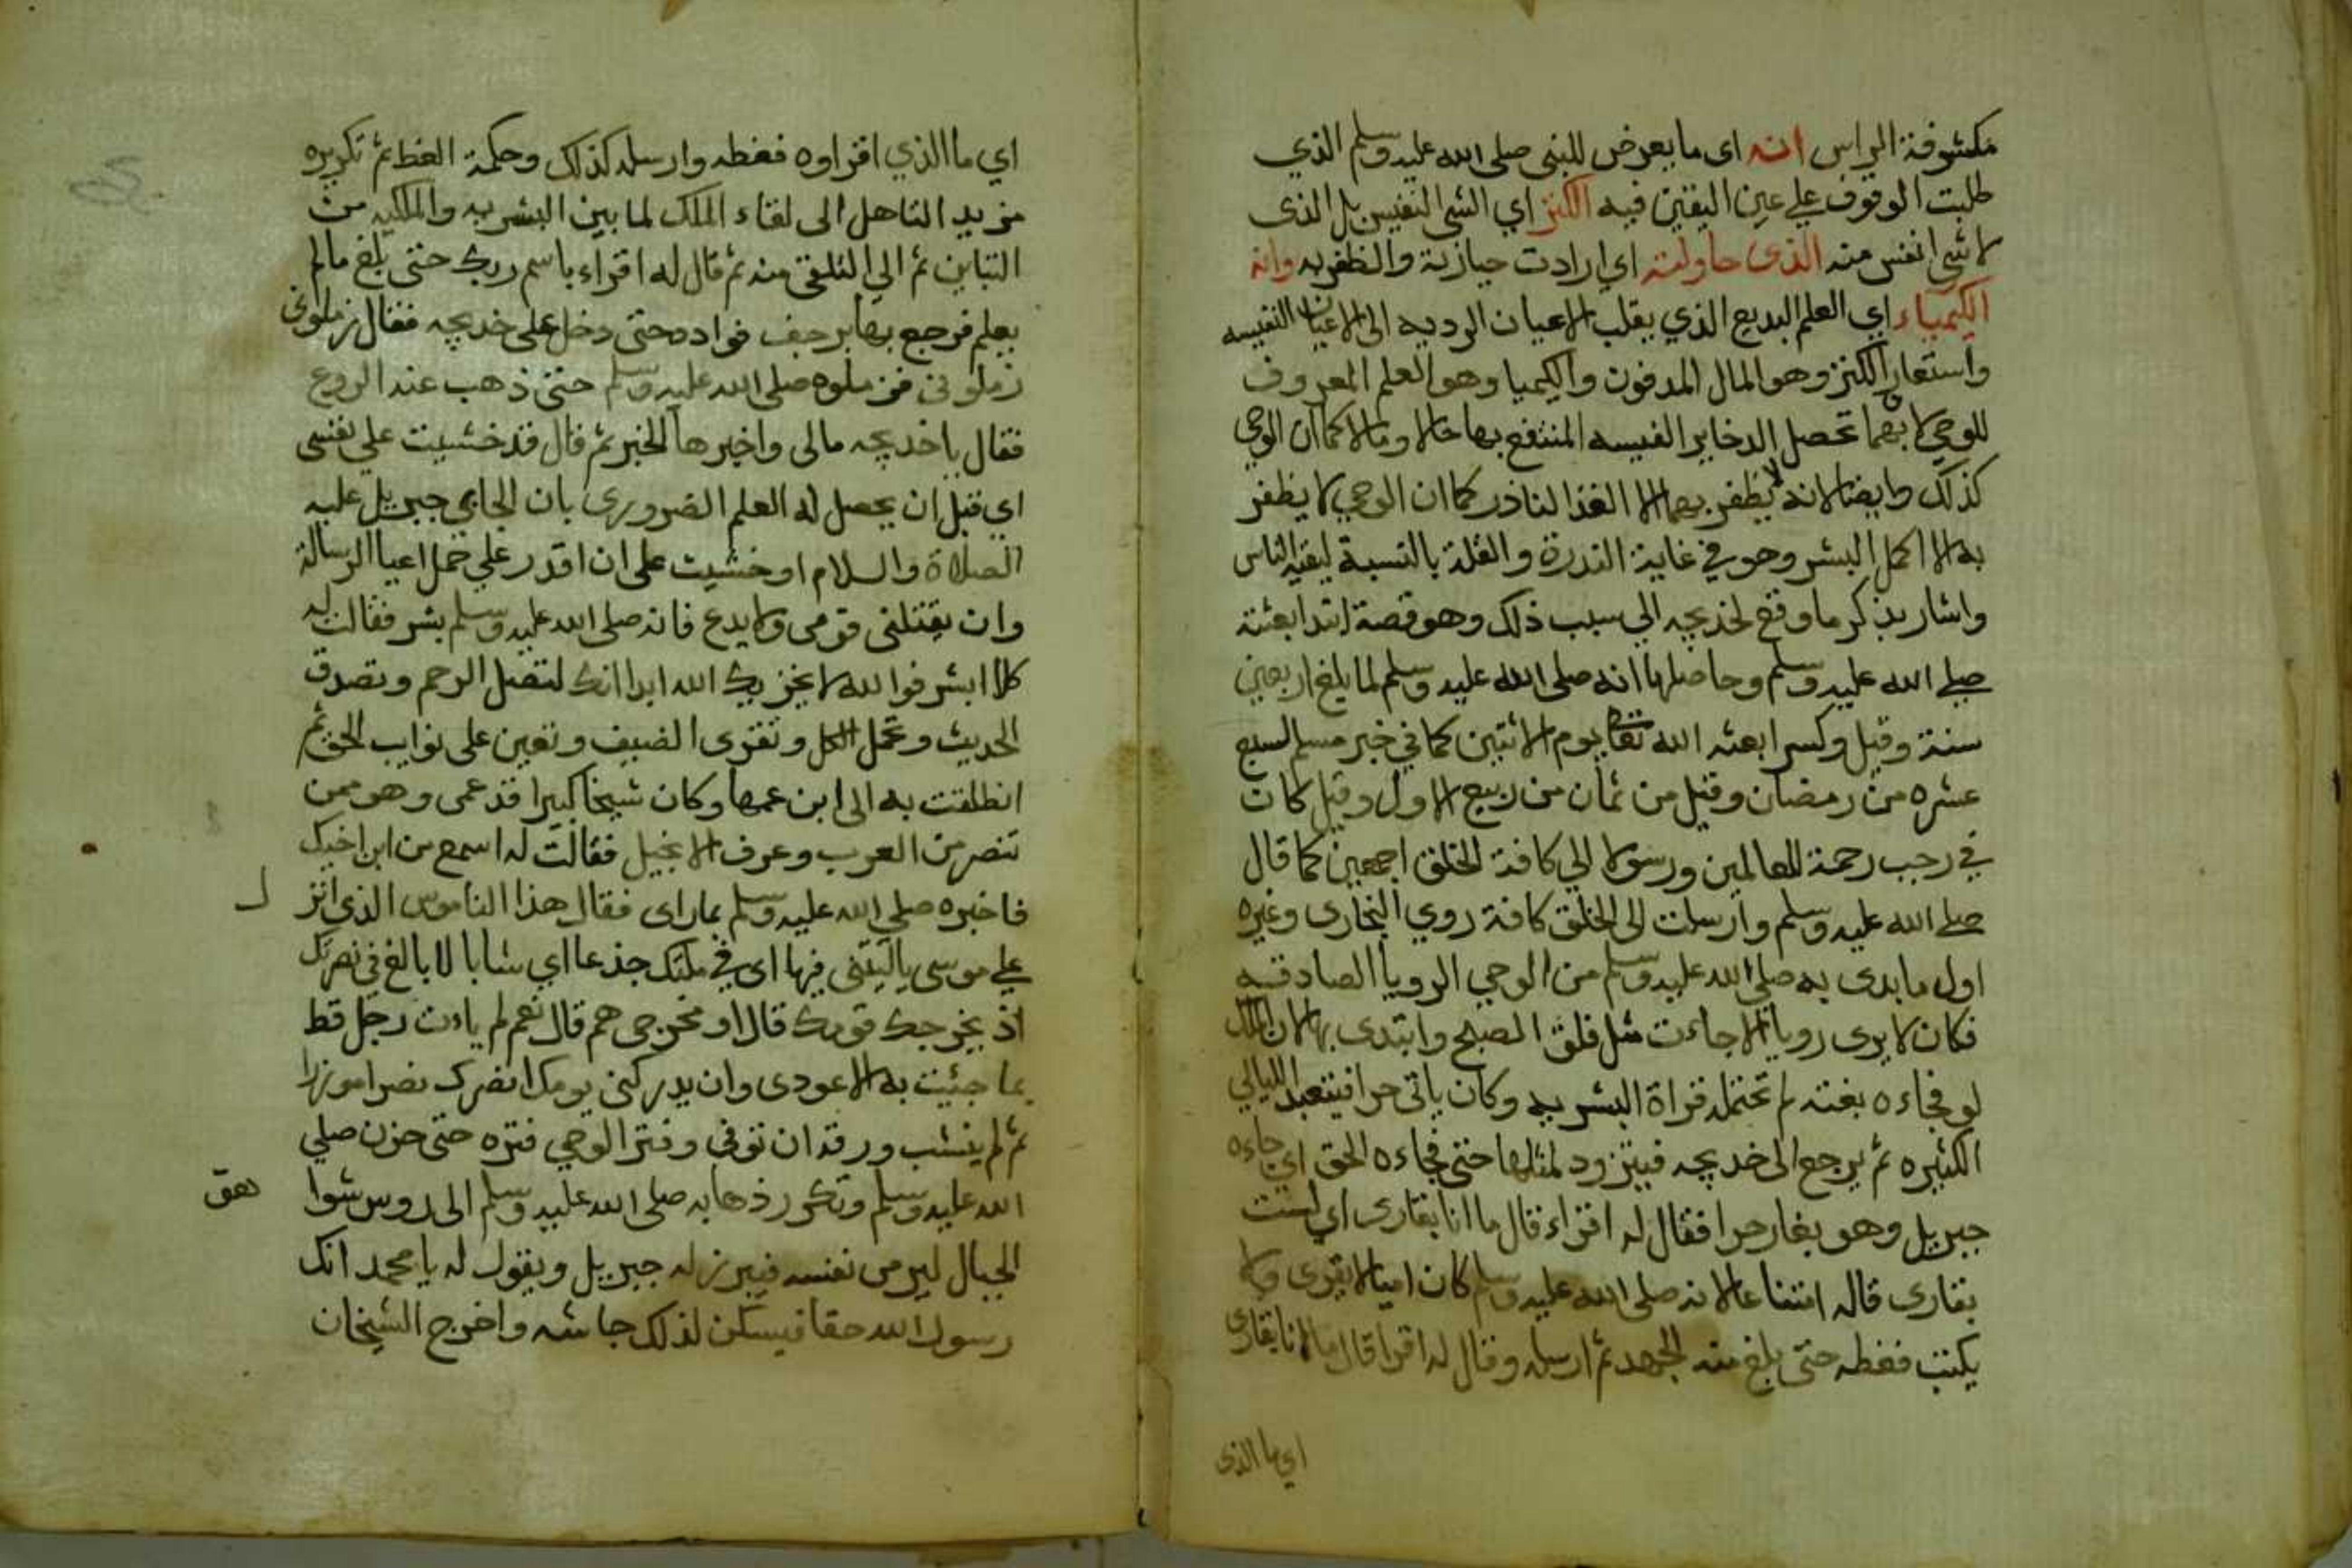 مكشوفة الراس انه اى ما يعرض للنبى صلى الله عليه وسلم الذي
طلبت الوقوف على عين اليقين فيه الكنز اي الشى النفيس بل الذى
لا شى انفس منه الذى حاولته اي ارادت حيازته والظفر به وانه
الكيمياء اي العلم البديع الذي يقلب الاعيان الرديه الى الاعيان النفيسه
واستعار الكنز وهو المال المدفون والكيميا وهو العلم المعروف
للوحي لا بهما تحصل الدخاير الفيسه المنتفع بها حالا ومالا كما ان الوحي
كذلك وايضا لانه لا يظفر بهما الا الفذ النادر كما ان الوحي لا يظفر
به الا اكمل البشر وهو في غاية الندرة والقلة بالنسبة لبقية الناس
واشار بذكر ما وقع لخديجه الي سبب ذلك وهو قصة ابتدا بعثته
صلي الله عليه وسلم وحاصلها انه صلى الله عليه وسلم لما بلغ اربعين
سنة وقيل وكسرا بعثه الله تعا يوم الاثنين كما في خبر مسلم لسبع
عشره من رمضان وقيل من ثمان من ربيع الاول وقيل كان
في رجب رحمة للعالمين ورسولا الي كافة الخلق اجمعين كما قال
صلي الله عليه وسلم وارسلت الى الخلق كافة روي البخارى وغيره
اول ما بدى به صلى الله عليه وسلم من الوحي الرويا الصادقه
فكان لا يرى رويا الا جاءت مثل فلق الصبح وابتدى بها لان الملك
لو فجاءه بغتة لم تحتمله قراة البشريه وكان ياتى حرا فيتعبد الليالي
الكثيره ثم يرجع الى خديجه فيتزود لمثلها حتى فجاءه الحق اي جاءه
جبريل وهو بغار حرا فقال له اقراء قال ما انا بقارى اي لست
بقارى قاله امتناعا لانه صلى الله عليه وسلم كان اميا لا يقرى ولا
يكتب فغطه حتى بلغ منه الجهد ثم ارسله وقال له اقرا قال ما انا بقارى
اي ما الذى
اي ما الذي اقراوه فغطه وارسله كذلك وحكمة الغط ثم تكريره
مزيد التاهل الى لقاء الملك لما بين البشريه والملكيه من
التباين ثم الي التلقى منه ثم قال له اقراء باسم ربك حتى بلغ مالم
يعلم فرجع بها يرجف فواده حتى دخل على خديجه فقال زملونى
زملونى فزملوه صلى الله عليه وسلم حتى ذهب عنه الروع
فقال يا خديجه مالى واخبرها الخبر ثم قال قد خشيت علي نفسى
اي قبل ان يحصل له العلم الضرورى بان الجاي جبريل عليه
الصلاة والسلام او خشيت على ان اقدر علي حمل اعيا الرسالة
وان يقتلنى قومى ولا يدع فانه صلى الله عليه وسلم بشر فقالت له
كلا ابشر فوالله لا يخزيك الله ابدا انك لتصل الرحم وتصدق
الحديث وتحمل الكل وتقرى الضيف وتعين على نوايب الحق ثم
انطلقت به الى ابن عمها وكان شيخا كبيرا قد عمى وهو ممن
تنصر من العرب وعرف الانجيل فقالت له اسمع من ابن اخيك
فاخبره صلي الله عليه وسلم بما راى فقال هذا الناموس الذي انز
ل
علي موسى ياليتنى فيها اى في ملتك جذعا اي شابا لا بالغ في نصرتك
اذ يخرجك قومك قال او مخرجى هم قال نعم لم يات رجل قط
بما جئيت به الا عودى وان يدركنى يومك انصرك نصرا موزرا
ثم لم ينشب ورقة ان توفى وفتر الوحي فتره حتى حزن صلي
الله عليه وسلم وتكرر ذهابه صلى الله عليه وسلم الى روس شوا
هق
الجبال ليرمى نفسه فيبرز له جبريل ويقول له يا محمد انك
رسول الله حقا فيسكن لذلك جاشه واخرج الشيخان